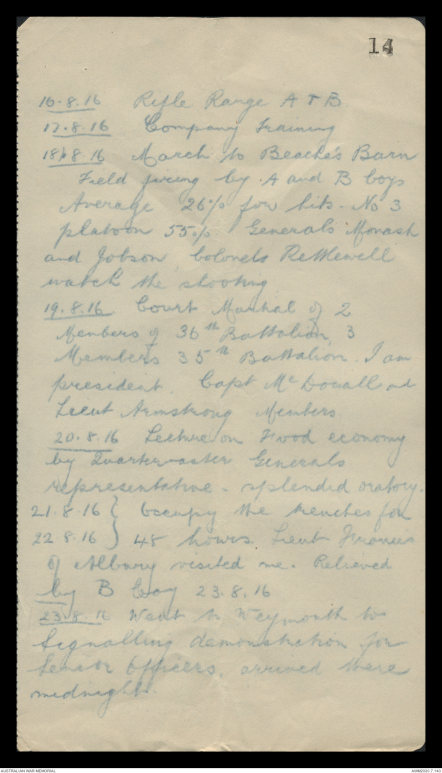 14
16.8.16 Rifle Range A & B.
17.8.16 Company Training
18.8.16 March to Beaches Barn
Field firing by A and B Coys
Average 26% for hits - No 3
platoon 55%. Generals Monash
and Jobson Colonels Rettlewell
watch the shooting
19.8.16 Court Martial of 2
Members of 36th Battalion, 3
Members 35th Battalion. I am
president. Capt McDouall and
Lieut Armstrong Members
20.8.16 Lecture on Food economy
by Quartermaster Generals
representative - splendid oratory.
21.8.16 } Occupy the trenches for
22.8.16 } 48 hours. Lieut
of Albury visited me. Relieved
by B Coy 23.8.16
23.8.16 Went to Weymouth to
Signalling demonstration for
Senior Officers, arrived there
midnight.
AUSTRALIAN WAR MEMORIAL